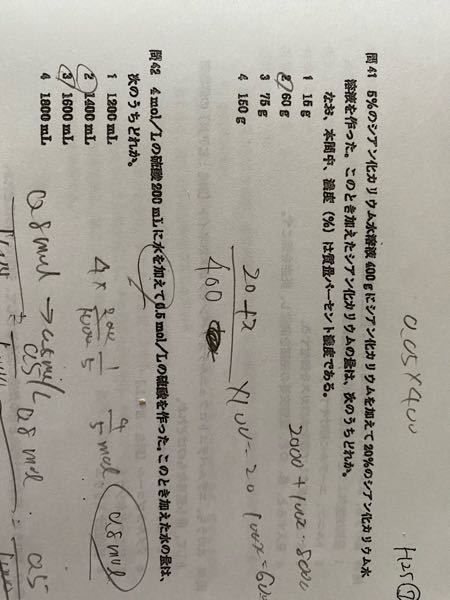 H25
0.05×400
問41 5%のシアン化カリウム水溶液400gにシアン化カリウムを加えて20%のシアン化カリウム水
溶液を作った。このとき加えたシアン化カリウムの量は、次のうちどれか。
なお、本問中、濃度(%)は質量パーセント濃度である。
1 15g
2 60g
3 75g
4 150g
2000+100x=8000
20+x
400
×100=20
問42 4mol/Lの硫酸200mLに水を加えて0.5mol/Lの硫酸を作った。このとき加えた水の量は、
次のうちどれか。
1 1200mL
2 1400mL
3 1600mL
4 1800mL
4×
200
1000
1
5
4
5
mol
0.8mol
0.8mol
0.8mol
0.5